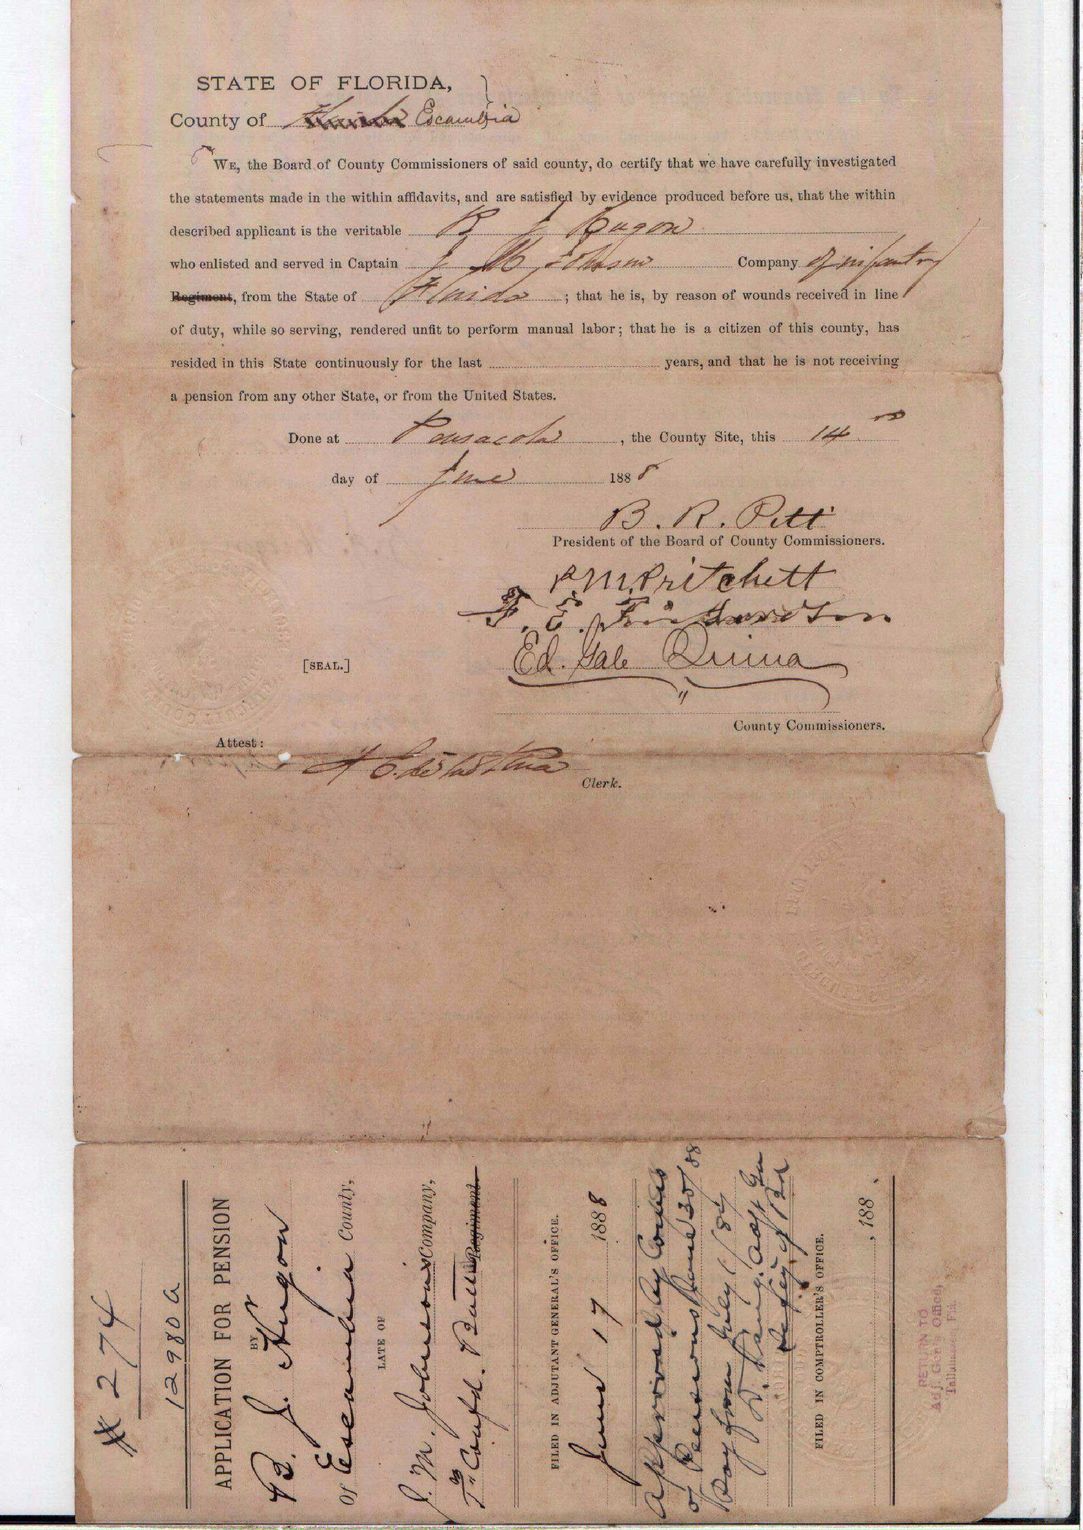 STATE OF FLORIDA,
County of Florida Escambia
WE, the Board of County Commissioners of said county, do certify that we have carefully investigated
the statements made in the within affidavits, and are satisfied by evidence produced before us, that the within
described applicant is the veritable B J Hugon
who enlisted and served in Captain J M Johnson Company of infantry
Regiment, from the State of Florida ; that he is, by reason of wounds received in line
of duty, while so serving, rendered unfit to perform manual labor; that he is a citizen of this county, has
resided in this State continuously for the last years, and that he is not receiving
a pension from any other State, or from the United States.
Done at Pensacola , the County Site, this 14
day of June 1888
B. R. Pitt
President of the Board of County Commissioners.
P M. Pritchett
F. E.
Ed. Gale Quina
[SEAL.]
County Commissioners.
Attest:
Clerk.
# 274
12980 A
APPLICATION FOR PENSION
BY
B. J. Hugon
Of Escambia County,
LATE OF
J. M. Johnson's Company,
7th Confd. Batt Regiment
FILED IN ADJUTANT GENERAL'S OFFICE.
June 17 1888
Approved by Comrs
of Pensions June 30/88
Pay from July 1/87
D. Lang. Adjt Gn
Secty of Bd
FILED IN COMPTROLLER'S OFFICE.
, 188 .
RETURN TO
Adj. Gen's Office,
Tallahassee Fla.